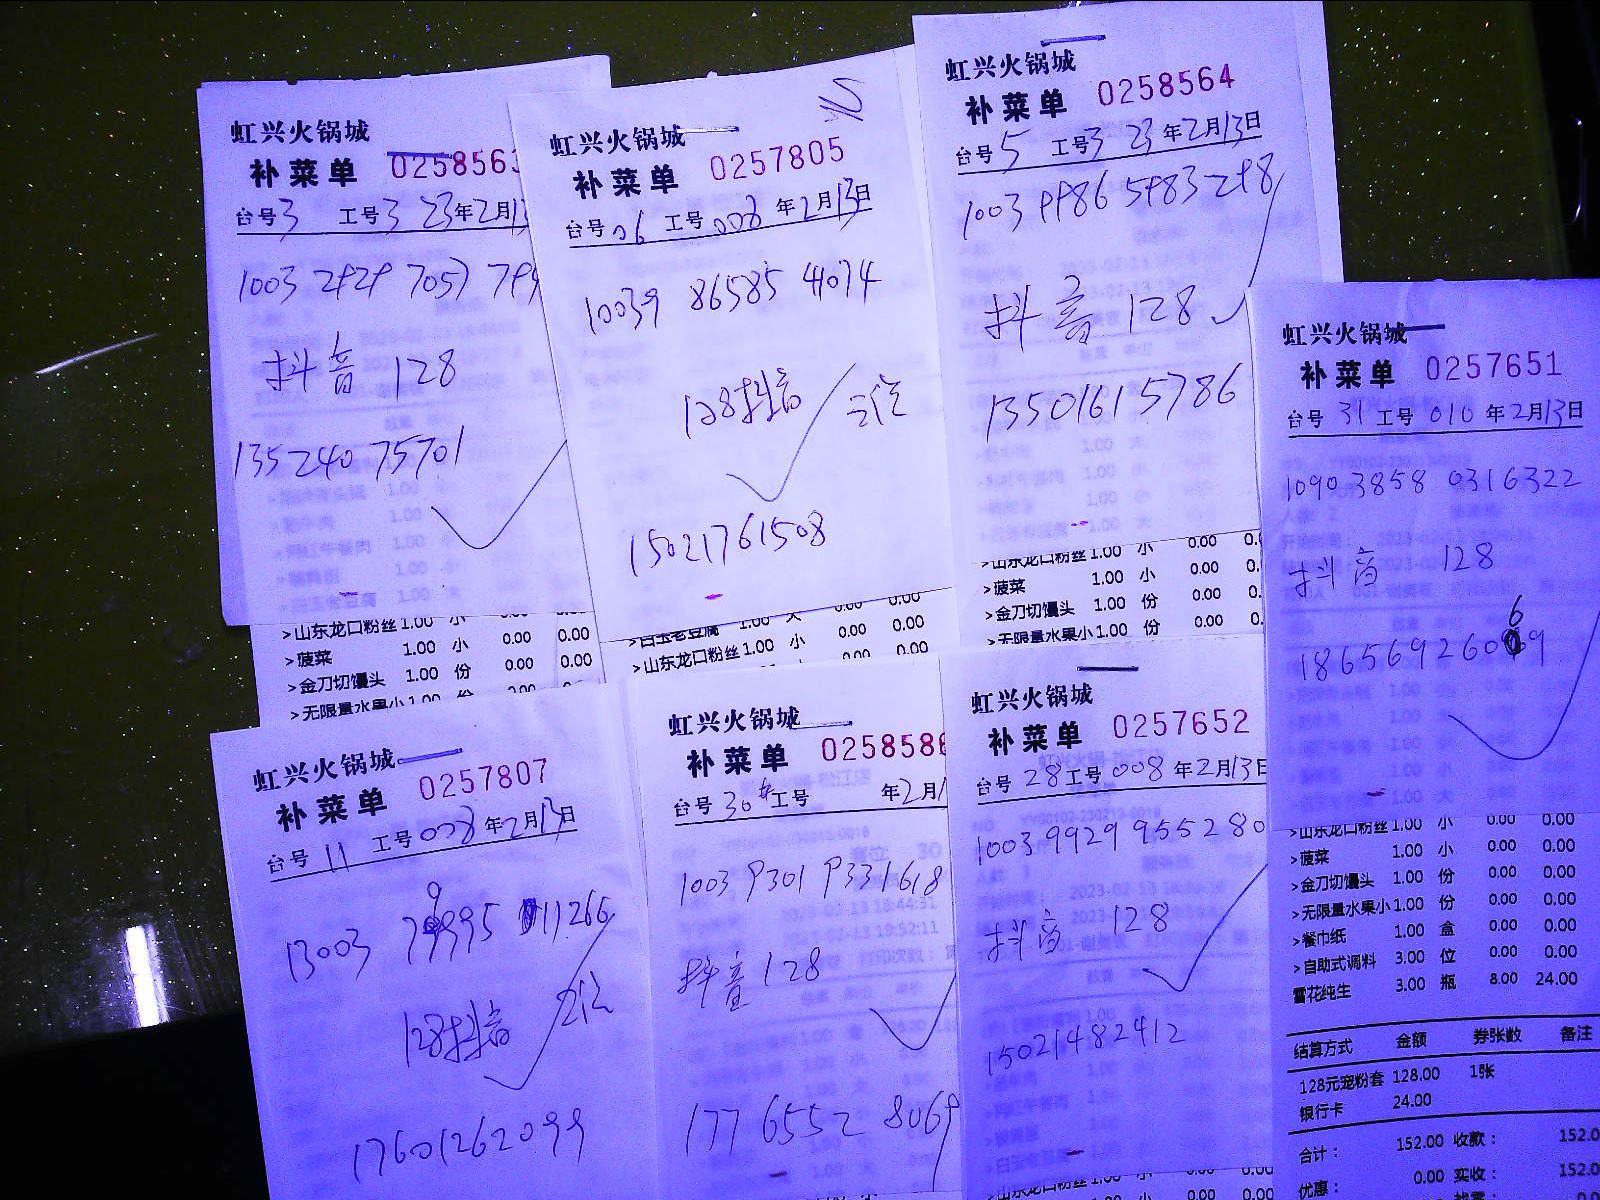 虹兴火锅城
补菜单 0258563
台号3 工号3 23年2月13
1003 2929 7057 799
抖音 128
13524075701
>山东龙口粉丝 1.00 小 0.00 0.00
>菠菜 1.00 小 0.00 0.00
>金刀切馒头 1.00 份 0.00 0.00
>无限量水果小 1.00 份 0.00 0.00
虹兴火锅城
补菜单 0257805
台号06 工号008 年2月13日
10039 86585 4074
128抖音 二位
15021761508
>白玉老豆腐 1.00 大 0.00 0.00
>山东龙口粉丝 1.00 小 0.00 0.00
虹兴火锅城
补菜单 0258564
台号5 工号3 23年2月13日
1003 9986 5983 298
抖音 128
13501615786
>山东龙口粉丝 1.00 小 0.00 0.
>菠菜 1.00 小 0.00 0.
>金刀切馒头 1.00 份 0.00 0.
>无限量水果小 1.00 份 0.00 0.
虹兴火锅城
补菜单 0257651
台号 31 工号 010 年2月13日
1090 3858 0316322
抖音 128
18656926069
>山东龙口粉丝 1.00 小 0.00 0.00
>菠菜 1.00 小 0.00 0.00
>金刀切馒头 1.00 份 0.00 0.00
>无限量水果小 1.00 份 0.00 0.00
>餐巾纸 1.00 盒 0.00 0.00
>自助式调料 3.00 位 0.00 0.00
雪花纯生 3.00 瓶 8.00 24.00
结算方式 金额 券张数 备注
128元宠粉套 128.00 1张
银行卡 24.00
合计： 152.00 收款： 152.0
优惠： 0.00 实收： 152.0
虹兴火锅城
补菜单 0257807
台号 11 工号008 年2月13日
13003 79995 11266
128抖音 2位
17601262099
虹兴火锅城
补菜单 0258586
台号 30# 工号 年2月1
1003 9301 9331618
抖音 128
177 6552 8069
虹兴火锅城
补菜单 0257652
台号 28 工号 008 年2月13日
1003 9929 955280
抖音 128
15021482412
>山东龙口粉丝 1.00 小 0.00 0.00